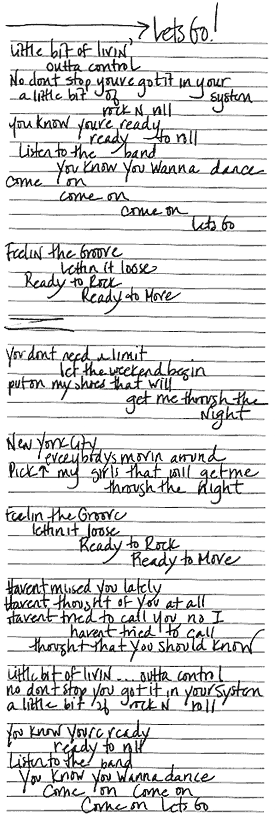 Lets Go!
Little bit of livin'
outta control
No dont stop youve got it in your
a little bit of system
rock N roll
you know youre ready
ready to roll
Listen to the band
you know you wanna dance
come on
come on
come on
lets Go
Feelin the Groove
lettin it loose
Ready to Rock
Ready to Move
you dont need a limit
let the weekend begin
put on my shoes that will
get me through the
Night
New York City
everybodys movin around
Pick ↑ my girls that will get me
through the night
Feelin the Groove
lettin it loose
Ready to Rock
Ready to Move
Havent missed you lately
Havent thought of you at all
Havent tried to call you no I
havent tried to call
thought that you should know
Little bit of livin ... outta control
no dont stop you got it in your system
a little bit of rock N roll
you know youre ready
ready to roll
Listen to the band
You know you wanna dance
Come on Come on
Come on Lets Go